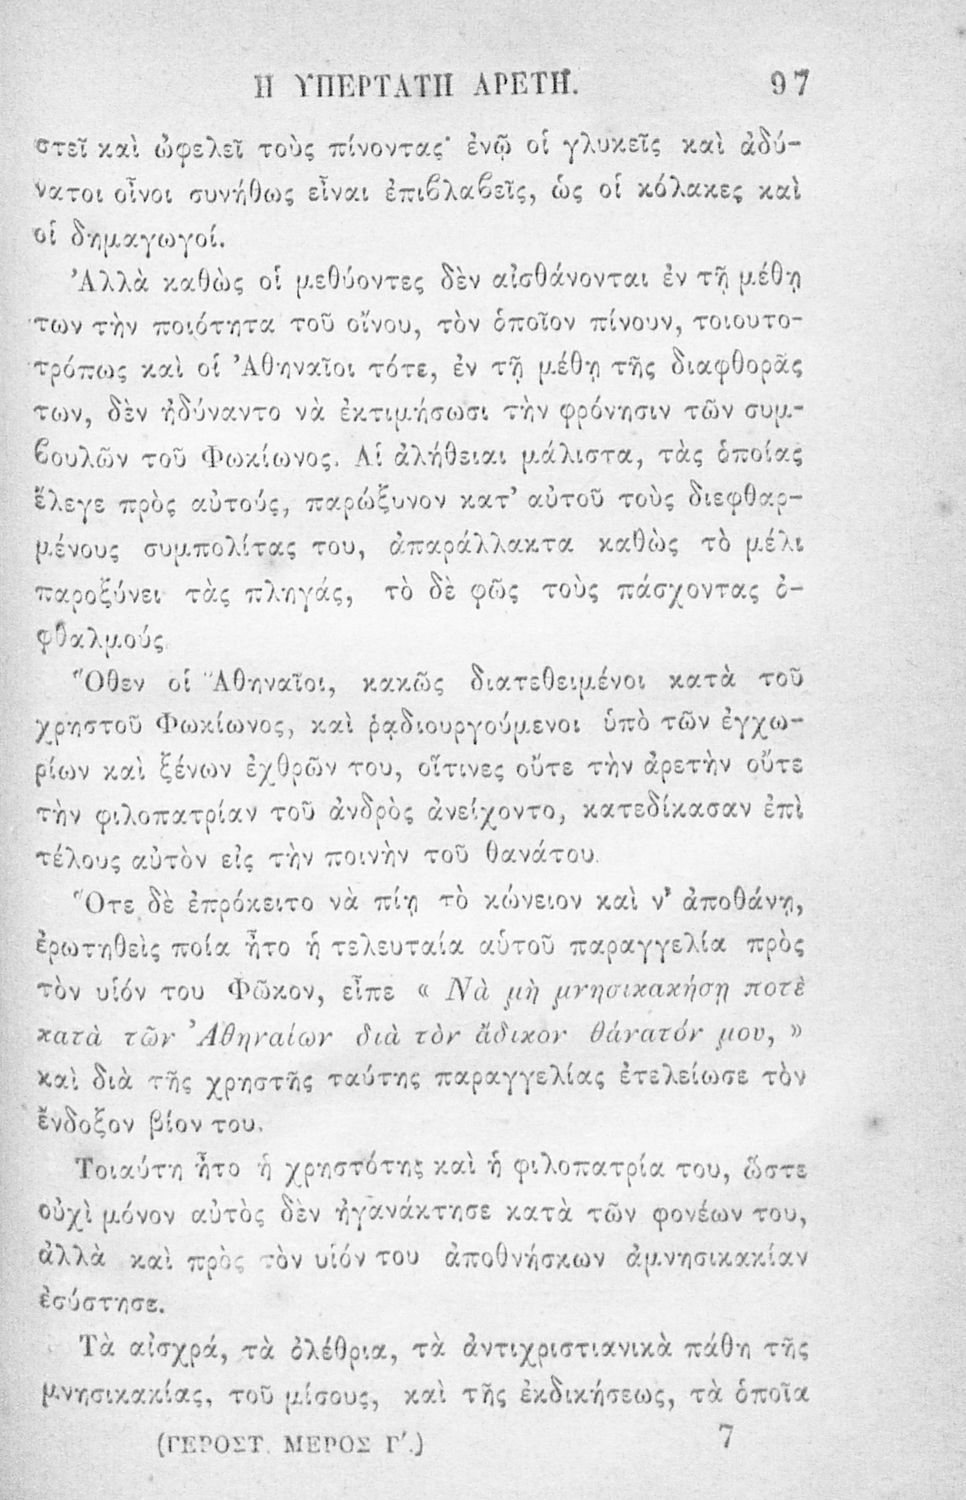 Η ΥΠΕΡΤΑΤΗ ΑΡΕΤΗ. 97
στεῖ καὶ ὠφελεῖ τοὺς πίνοντας· ἐνῷ οἱ γλυκεῖς καὶ ἀδύ-
νατοι οἶνοι συνήθως εἶναι ἐπιβλαβεῖς, ὡς οἱ κόλακες καὶ
οἱ δημαγωγοί.
Ἀλλὰ καθὼς οἱ μεθύοντες δὲν αἰσθάνονται ἐν τῇ μέθῃ
των τὴν ποιότητα τοῦ οἴνου, τὸν ὁποῖον πίνουν, τοιουτο-
τρόπως καὶ οἱ Ἀθηναῖοι τότε, ἐν τῇ μέθῃ τῆς διαφθορᾶς
των, δὲν ἠδύναντο νὰ ἐκτιμήσωσι τὴν φρόνησιν τῶν συμ-
βουλῶν τοῦ Φωκίωνος. Αἱ ἀλήθειαι μάλιστα, τὰς ὁποίας
ἔλεγε πρὸς αὐτούς, παρώξυνον κατ’ αὐτοῦ τοὺς διεφθαρ-
μένους συμπολίτας του, ἀπαράλλακτα καθὼς τὸ μέλι
παροξύνει τὰς πληγάς, τὸ δὲ φῶς τοὺς πάσχοντας ὀ-
φθαλμούς
Ὅθεν οἱ Ἀθηναῖοι, κακῶς διατεθειμένοι κατὰ τοῦ
χρηστοῦ Φωκίωνος, καὶ ῥᾳδιουργούμενοι ὑπὸ τῶν ἐγχω-
ρίων καὶ ξένων ἐχθρῶν του, οἵτινες οὔτε τὴν ἀρετὴν οὔτε
τὴν φιλοπατρίαν τοῦ ἀνδρὸς ἀνείχοντο, κατεδίκασαν ἐπὶ
τέλους αὐτὸν εἰς τὴν ποινὴν τοῦ θανάτου.
Ὅτε δὲ ἐπρόκειτο νὰ πίῃ τὸ κώνειον καὶ ν’ ἀποθάνῃ,
ἐρωτηθεὶς ποία ἦτο ἡ τελευταία αὑτοῦ παραγγελία πρὸς
τὸν υἱόν του Φῶκον, εἶπε « Νὰ μὴ μνησικακήσῃ ποτὲ
κατὰ τῶν Ἀθηναίων διὰ τὸν ἄδικον θάνατόν μου, »
καὶ διὰ τῆς χρηστῆς ταύτης παραγγελίας ἐτελείωσε τὸν
ἔνδοξον βίον του.
Τοιαύτη ἦτο ἡ χρηστότης καὶ ἡ φιλοπατρία του, ὥστε
οὐχὶ μόνον αὐτὸς δὲν ἠγανάκτησε κατὰ τῶν φονέων του,
ἀλλὰ καὶ πρὸς τὸν υἱόν του ἀποθνήσκων ἀμνησικακίαν
ἐσύστησε.
Τὰ αἰσχρά, τὰ ὀλέθρια, τὰ ἀντιχριστιανικὰ πάθη τῆς
μνησικακίας, τοῦ μίσους, καὶ τῆς ἐκδικήσεως, τὰ ὁποῖα
(ΓΕΡΟΣΤ. ΜΕΡΟΣ Γ΄.) 7